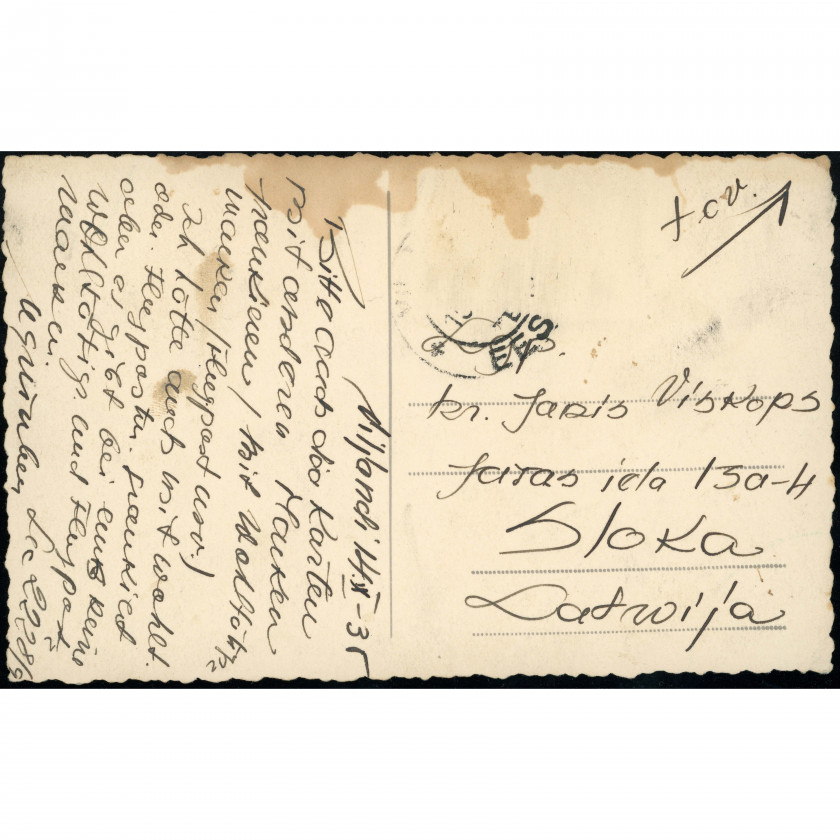 Viljandi 14 X - 35
Bitte auch die Karten
mit anderen Marken
frankieren / mit Wohltätig
marken / Flugpost usw. /
Ich hätte auch mit wohlt.
oder Flugpostm. frankiert
aber es gibt bei uns keine
wohltätigs und Flugpost
marken.
t.c.v.
EES
kr. Janis Viskops
Juras iela 13a-4
Sloka
Latwija